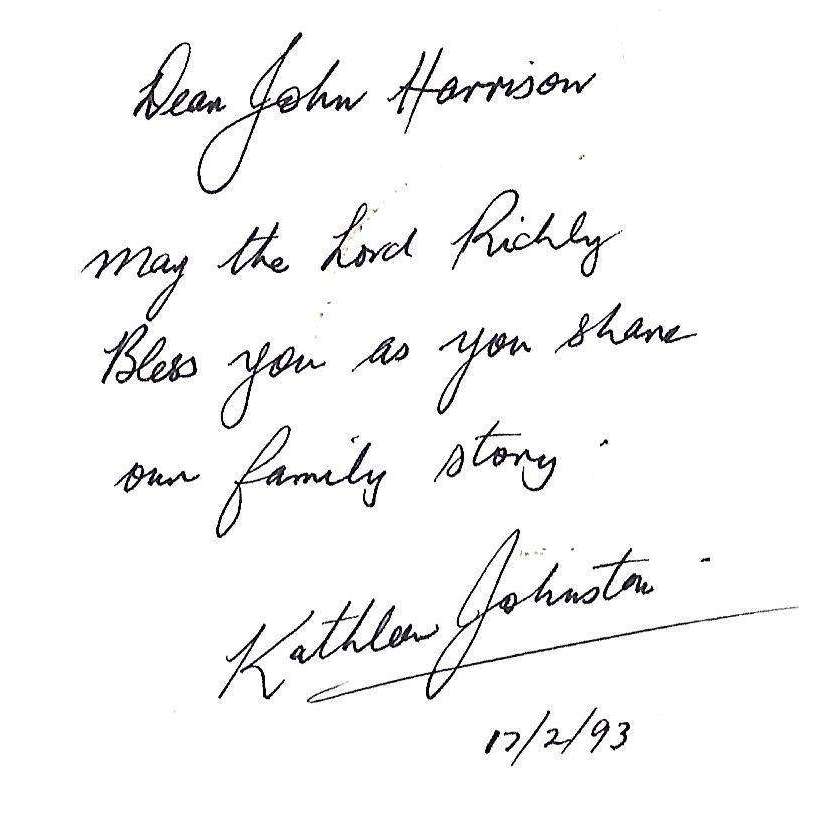 Dear John Harrison
May the Lord Richly
Bless you as you share
our family story.
Kathleen Johnston.
17/2/93